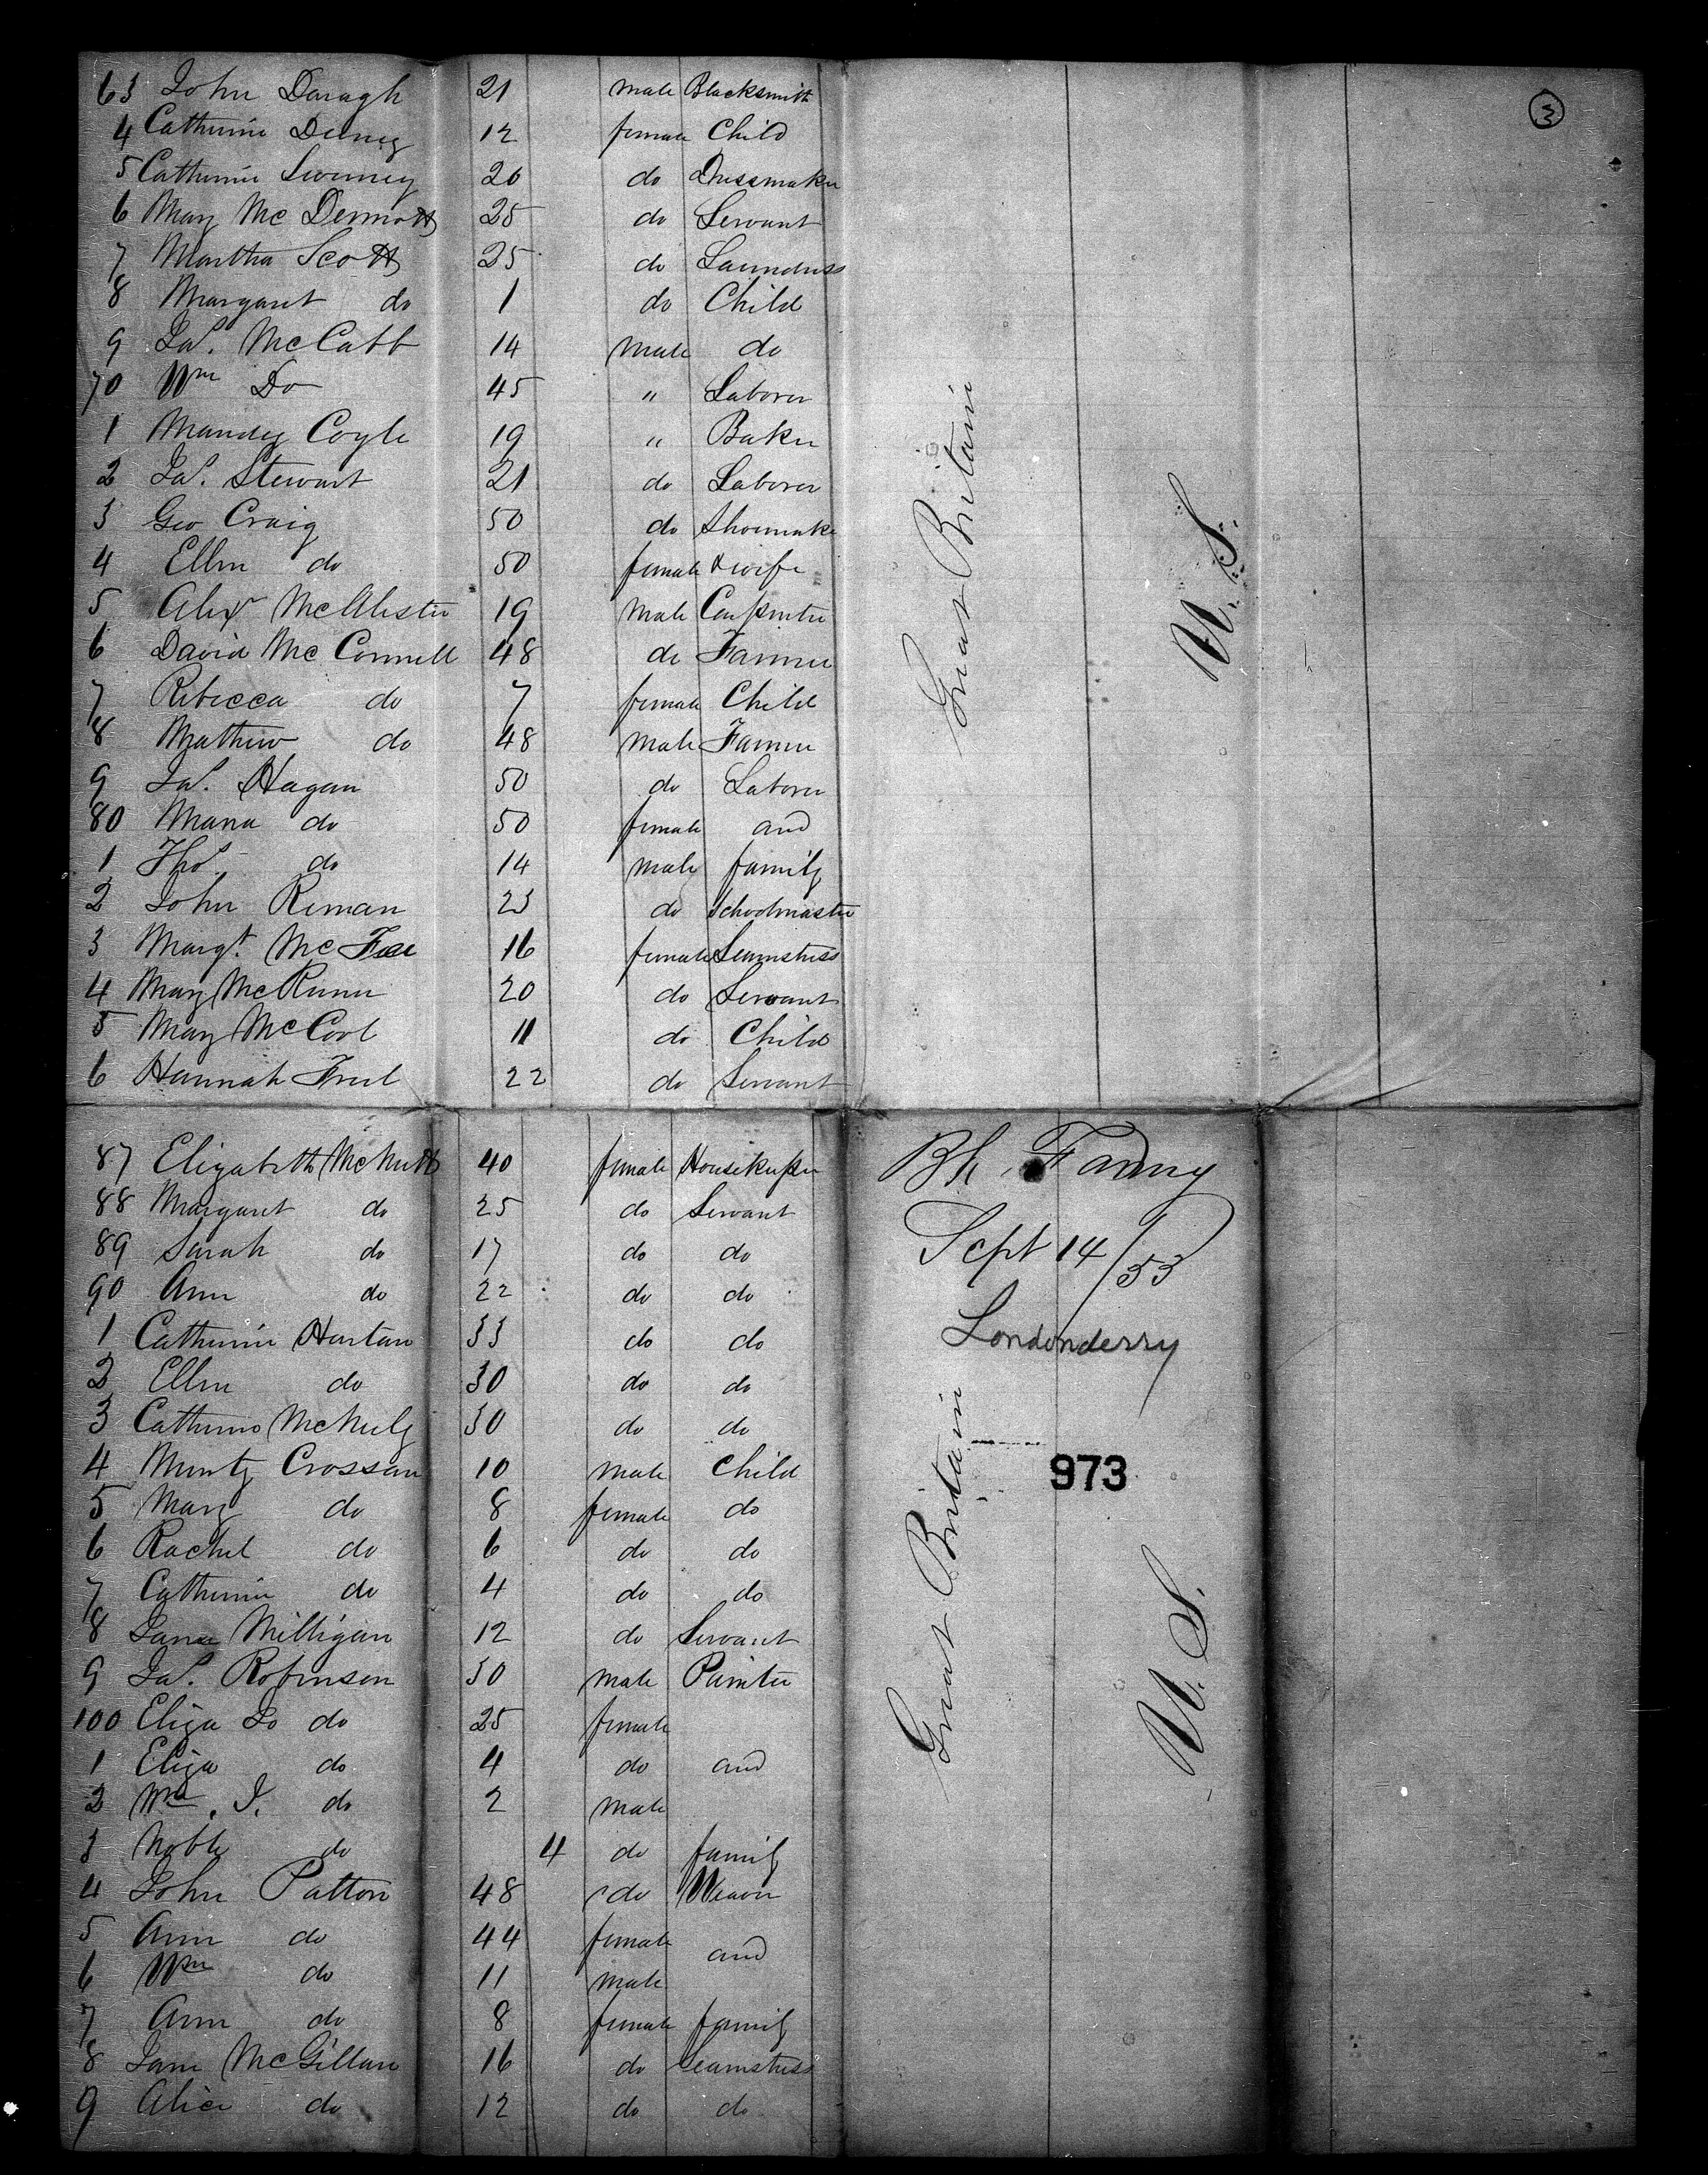 3
63 John Daragh 21 male Blacksmith
4 Catherine Deeney 12 female Child
5 Catherine Sweeney 20 do Dressmaker
6 Mary McDermott 25 do Servant
7 Martha Scott 25 do Laundress
8 Margaret do 1 do Child
9 Jas. McCabb 14 male do
70 Wm Do 45 " Laborer
1 Coyle 19 " Baker
2 Jas. Stewart 21 do Laborer
3 Geo Craig 50 do Shoemaker
4 Ellen do 50 female & wife
5 Alexr McAlister 19 male Carpenter
6 David McConnell 48 do Farmer
7 Rebecca do 7 female Child
8 Mathew do 48 male Farmer
9 Jas. Hagan 50 do Laborer
80 Maria do 50 female and
1 Thos. do 14 male family
2 John 23 do Schoolmaster
3 Margt. McFee 16 female Seamstress
4 Mary 20 do Servant
5 Mary McCool 11 do Child
6 Hannah Freel 22 do Servant
Great Britain
U. S.
87 Elizabeth McNutt 40 female Housekeeper
88 Margaret do 25 do Servant
89 Sarah do 17 do do
90 Ann do 22 do do
1 Catherine 33 do do
2 Ellen do 30 do do
3 Catherine McNeely 30 do do
4 Crossan 10 male Child
5 Mary do 8 female do
6 Rachel do 6 do do
7 Catherine do 4 do do
8 Jane Milligan 12 do Servant
9 Jas. Robinson 30 male Painter
100 Eliza do 25 female
1 Eliza do 4 do and
2 Wm. J. do 2 male
3 Noble do 4 do family
4 John Patton 48 do Weaver
5 Ann do 44 female and
6 Wm do 11 male
7 Ann do 8 female family
8 Jane McGillan 16 do Seamstress
9 Alice do 12 do do
Bk. Fanny
Sept 14/53
Londonderry
973
Great Britain
U. S.